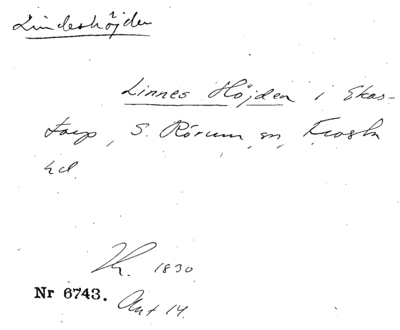 Lindeshöjden
Linnes Höjden i Ekas-
torp, S. Rörum sn, Frosta
hd.
1830
Nr 6743. Ant 14.